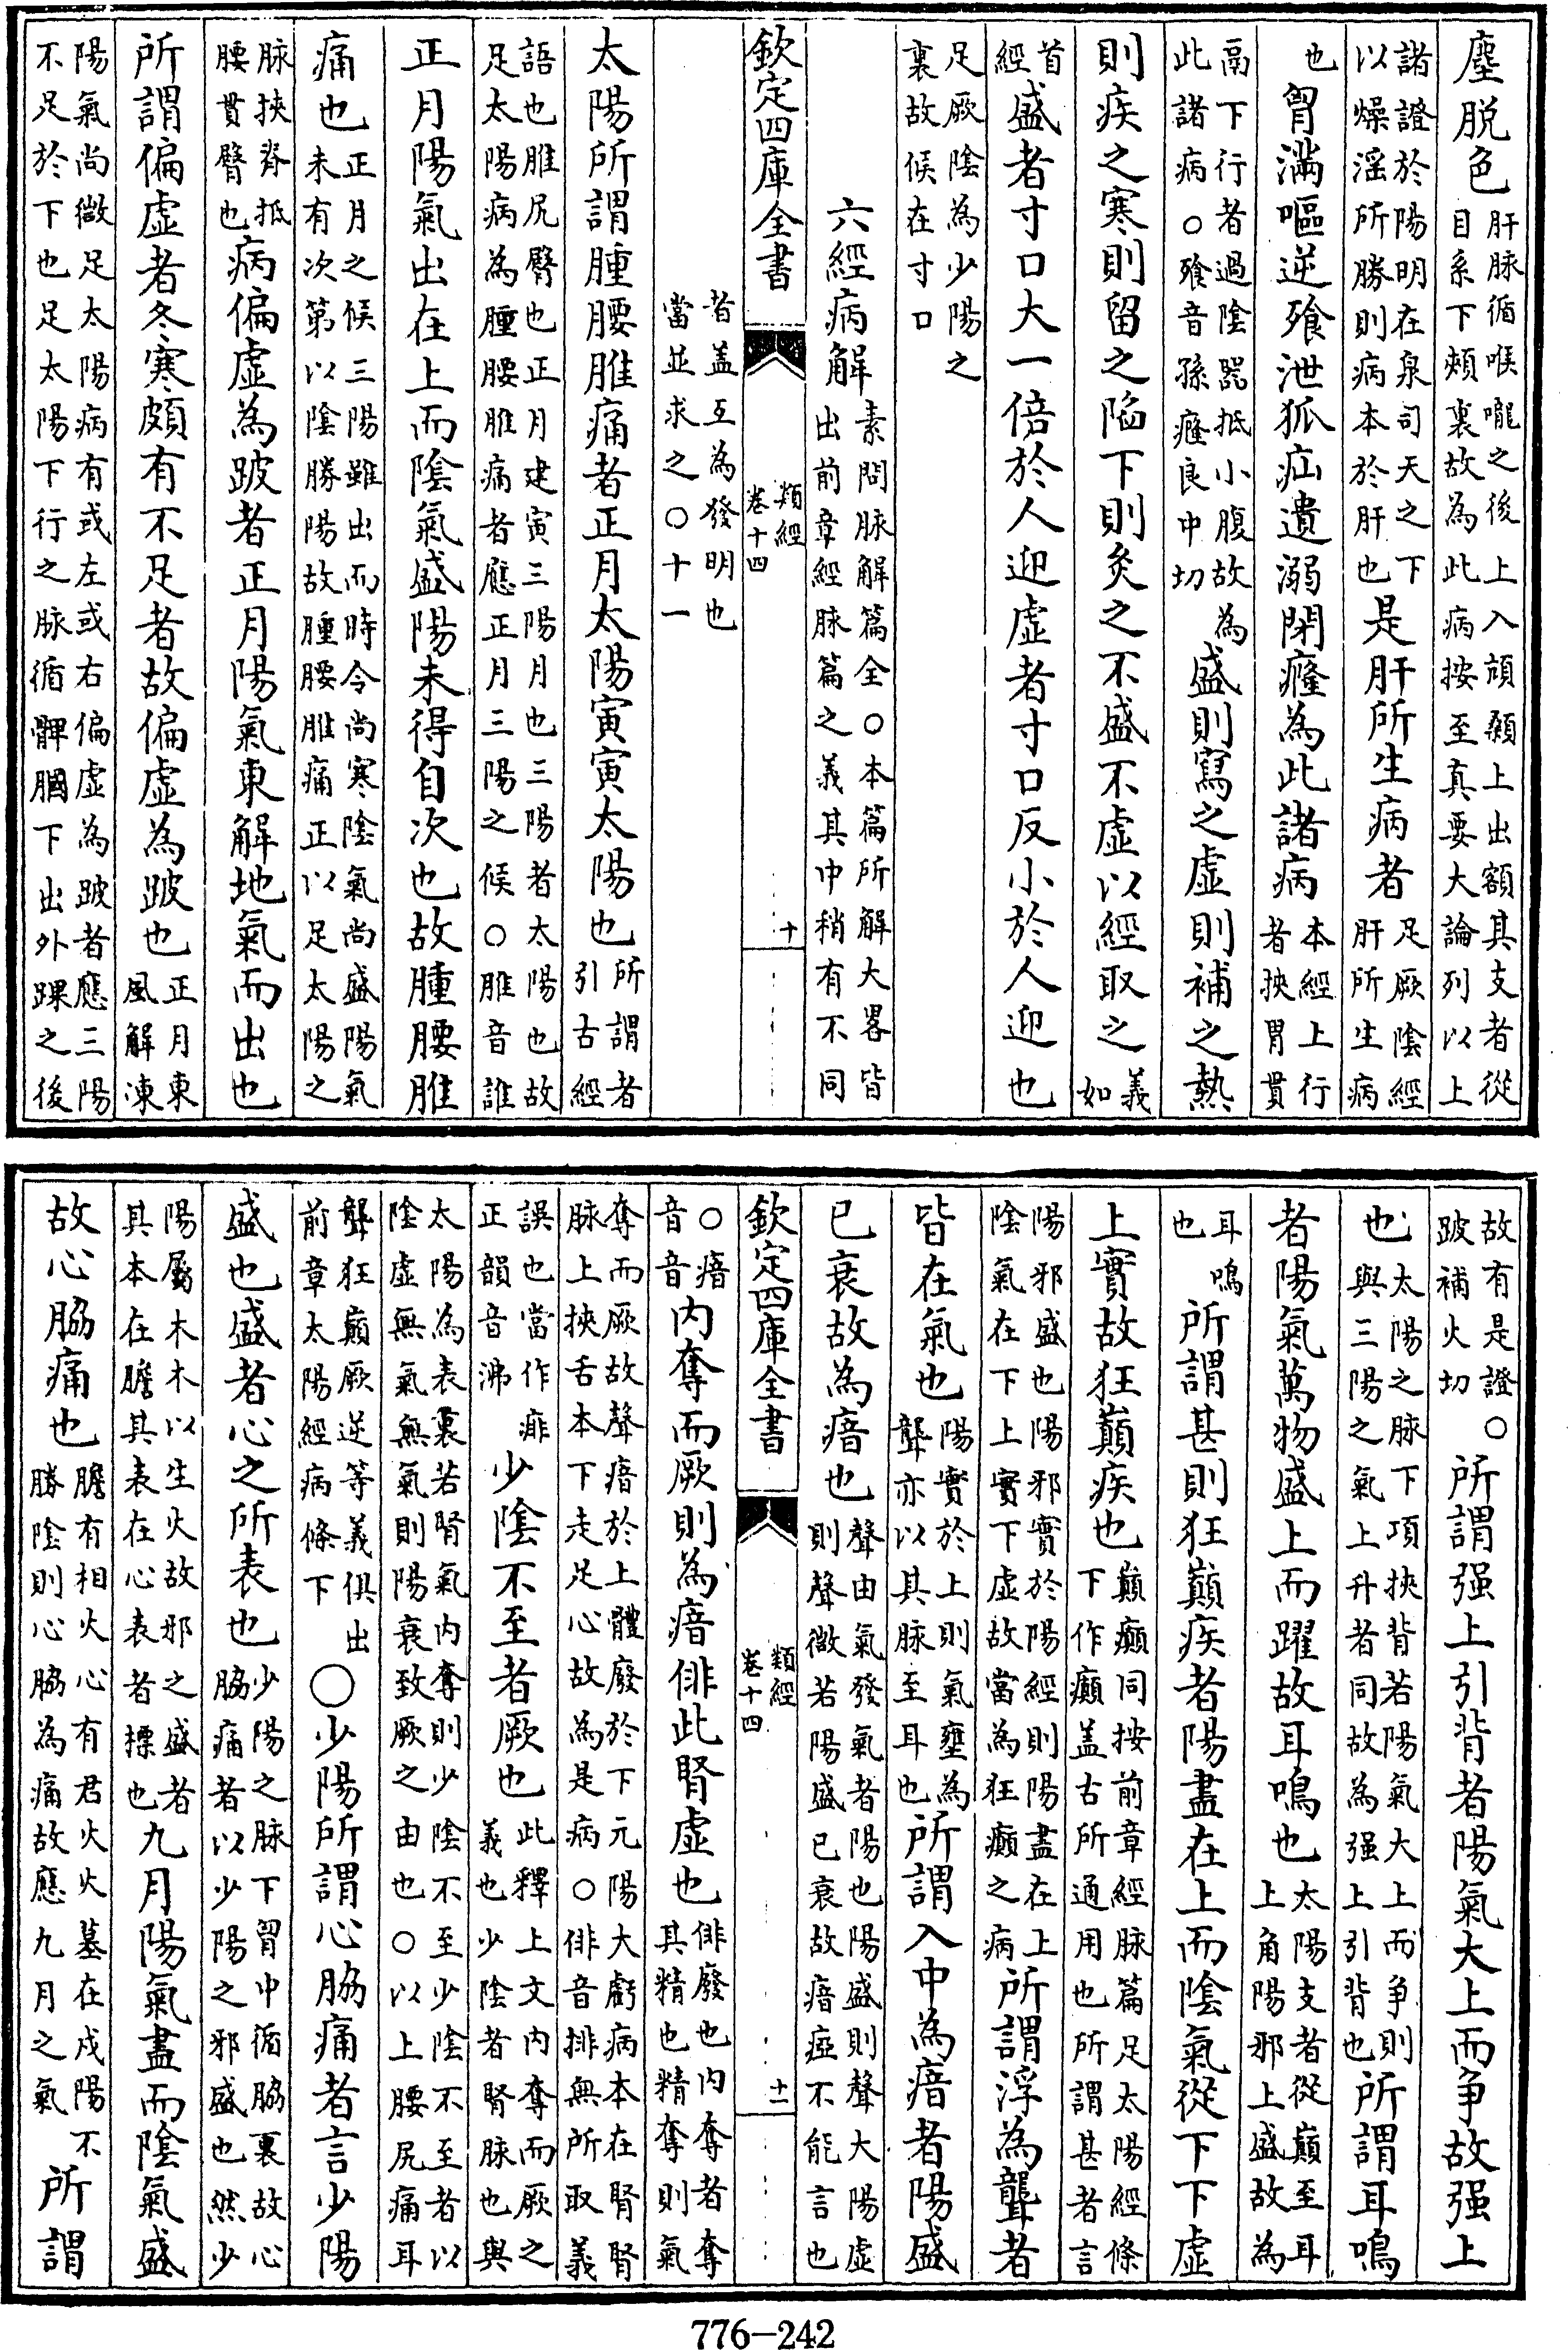 塵脱色肝脉循喉嚨之後上入頏顙上出額其支者從目系下頰裏故為此病按至真要大論列以上
諸證於陽明在泉司天之下以燥淫所勝則病本於肝也是肝所生病者足厥陰經肝所生病
也胷滿嘔逆飱泄狐疝遺溺閉癃為此諸病本經上行者挾胃貫
鬲下行者過陰器抵小腹故為此諸病○飱音孫癃良中切盛則寫之虛則補之熱
則疾之寒則留之陷下則灸之不盛不虛以經取之義如
首經盛者寸口大一倍於人迎虛者寸口反小於人迎也
足厥陰為少陽之裏故候在寸口
六經病解素問脉解篇全○本篇所解大畧皆出前章經脉篇之義其中稍有不同
欽定四庫全書 類經卷十四 十
者盖互為發明也當並求之○十一
太陽所謂腫腰脽痛者正月太陽寅寅太陽也所謂者引古經
語也脽尻臀也正月建寅三陽月也三陽者太陽也故足太陽病為腫腰脽痛者應正月三陽之候○脽音誰
正月陽氣出在上而陰氣盛陽未得自次也故腫腰脽
痛也正月之候三陽雖出而時令尚寒陰氣尚盛陽氣未有次第以陰勝陽故腫腰脽痛正以足太陽之
脉挾脊抵腰貫臀也病偏虛為跛者正月陽氣東解地氣而出也
所謂偏虛者冬寒頗有不足者故偏虛為跛也正月東風解凍
陽氣尚微足太陽病有或左或右偏虛為跛者應三陽不足於下也足太陽下行之脉循髀膕下出外踝之後
故有是證○跛補火切所謂强上引背者陽氣大上而争故强上
也太陽之脉下項挾背若陽氣大上而争則與三陽之氣上升者同故為强上引背也所謂耳鳴
者陽氣萬物盛上而躍故耳鳴也太陽支者從巔至耳上角陽邪上盛故為
耳鳴也所謂甚則狂巔疾者陽盡在上而陰氣從下下虛
上實故狂巔疾也巔癲同按前章經脉篇足太陽經條下作癲盖古所通用也所謂甚者言
陽邪盛也陽邪實於陽經則陽盡在上陰氣在下上實下虛故當為狂癲之病所謂浮為聾者
皆在氣也陽實於上則氣壅為聾亦以其脉至耳也所謂入中為瘖者陽盛
已衰故為瘖也聲由氣發氣者陽也陽盛則聲大陽虛則聲微若陽盛已衰故瘖瘂不能言也
欽定四庫全書 類經卷十四 十一
○瘖音音内奪而厥則為瘖俳此腎虛也俳廢也内奪者奪其精也精奪則氣
奪而厥故聲瘖於上體廢於下元陽大虧病本在腎腎脉上挾舌本下走足心故為是病○俳音排無所取義
誤也當作痱正韻音沸少陰不至者厥也此釋上文内奪而厥之義也少陰者腎脉也與
太陽為表裏若腎氣内奪則少陰不至少陰不至者以陰虛無氣無氣則陽衰致厥之由也○以上腰尻痛耳
聾狂巔厥逆等義俱出前章太陽經病條下○少陽所謂心脇痛者言少陽
盛也盛者心之所表也少陽之脉下胷中循脇裏故心脇痛者以少陽之邪盛也然少
陽屬木木以生火故邪之盛者其本在膽其表在心表者摽也九月陽氣盡而陰氣盛
故心脇痛也膽有相火心有君火火墓在戌陽不勝陰則心脇為痛故應九月之氣所謂
776-242